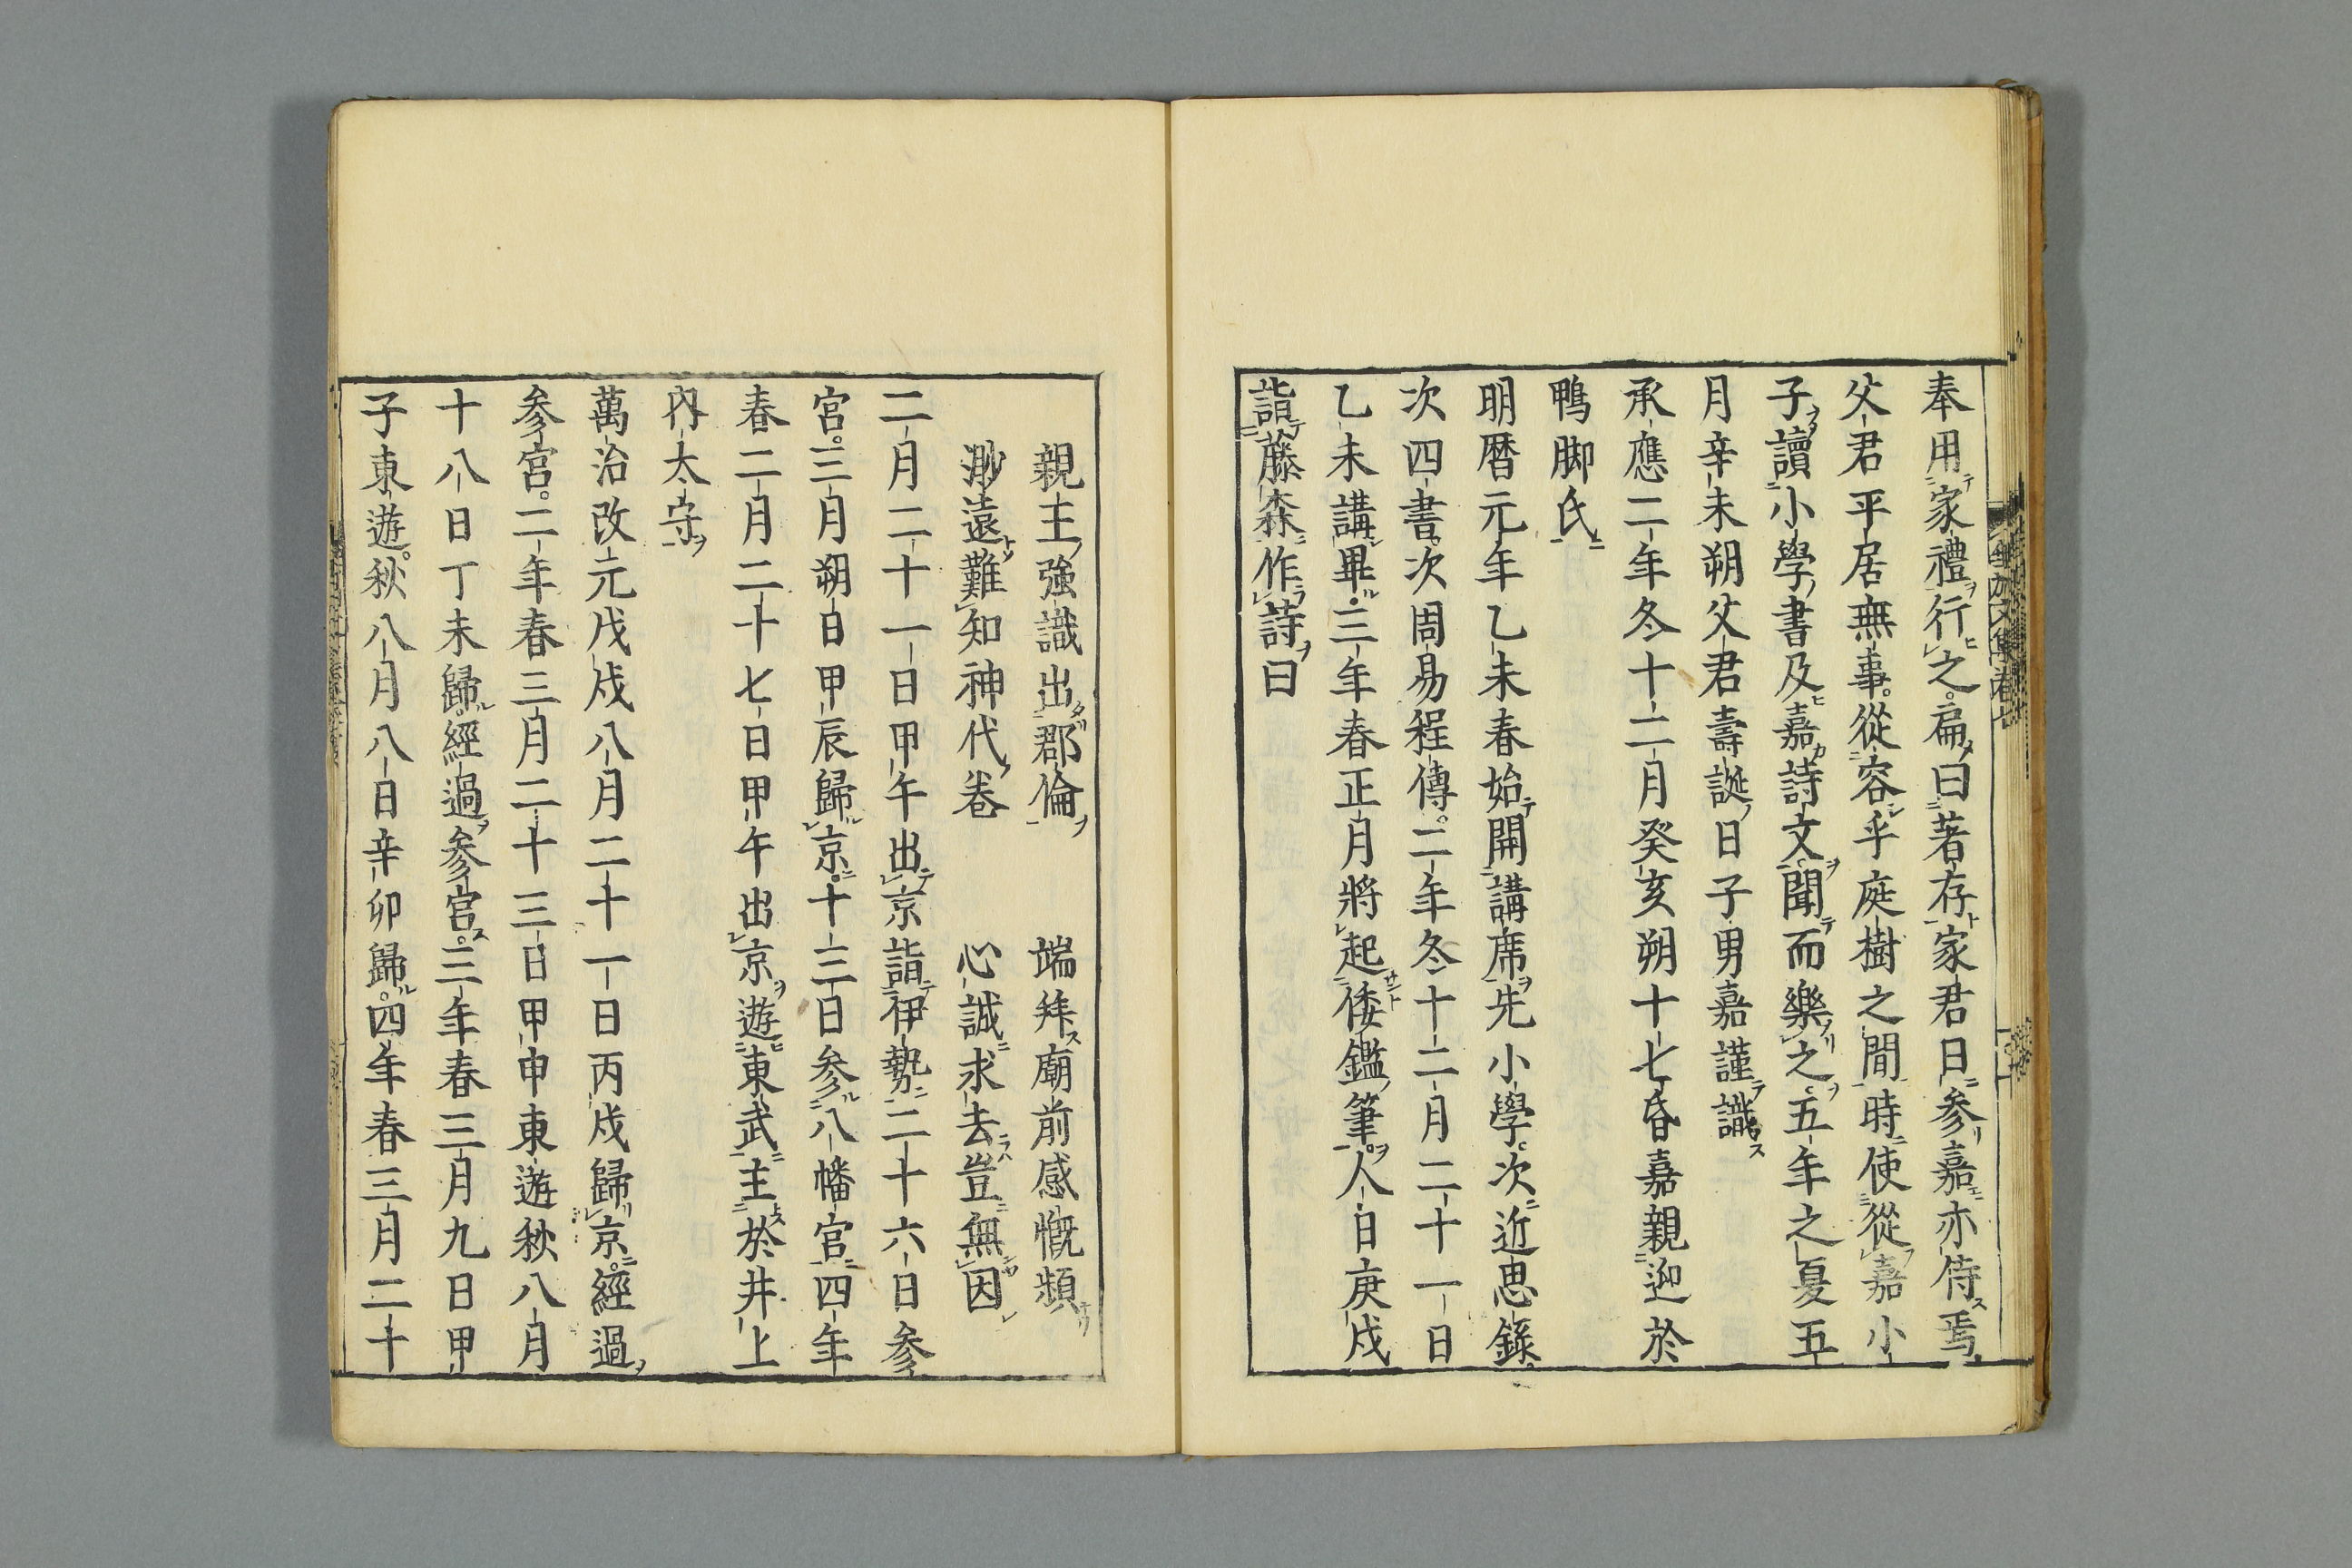 奉用家禮行之。扁曰著存家君日参嘉亦侍焉
父君平居無事。從容乎庭樹之間時使從嘉小
子讀小學書及嘉詩文聞而樂之五年之夏五
月辛未朔父君壽誕日子男嘉謹識
承應二年冬十二月癸亥朔十七昏嘉親迎於
鴨脚氏
明暦元年乙未春始開講席先小學次近思錄
次四書次周易程傳。二年冬十二月二十一日
乙未講畢。三年春正月將起倭鑑筆。人日庚戌
詣藤森作詩曰
親王強識出郡倫 端拜廟前感慨頻
渺遠難知神代巻 心誠求去豈無因
二月二十一日甲午出京詣伊勢二十六日参
宮。三月朔日甲辰歸京。十三日参八幡宮四年
春二月二十七日甲午出京遊東武主於井上
内太守
萬治改元戊戌八月二十一日丙戌歸京。經過
参宮。二年春三月二十三日甲申東遊秋八月
十八日丁未歸。經過参宮。三年春三月九日甲
子東遊。秋八月八日辛卯歸。四年春三月二十